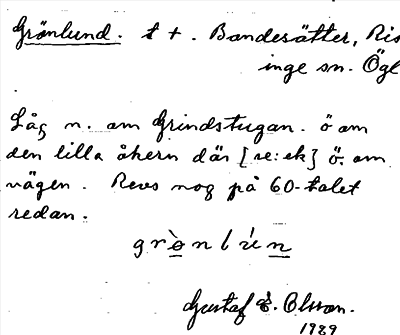 Grönlund. t +. Bandesätter, Ris
inge sn. Ögl
Låg n. om Grindstugan. ö om
den lilla åkern där [re: ek] ö. om
vägen. Revs nog på 60-talet
redan.
grö̀nlún
Gustaf E. Olsson.
1929